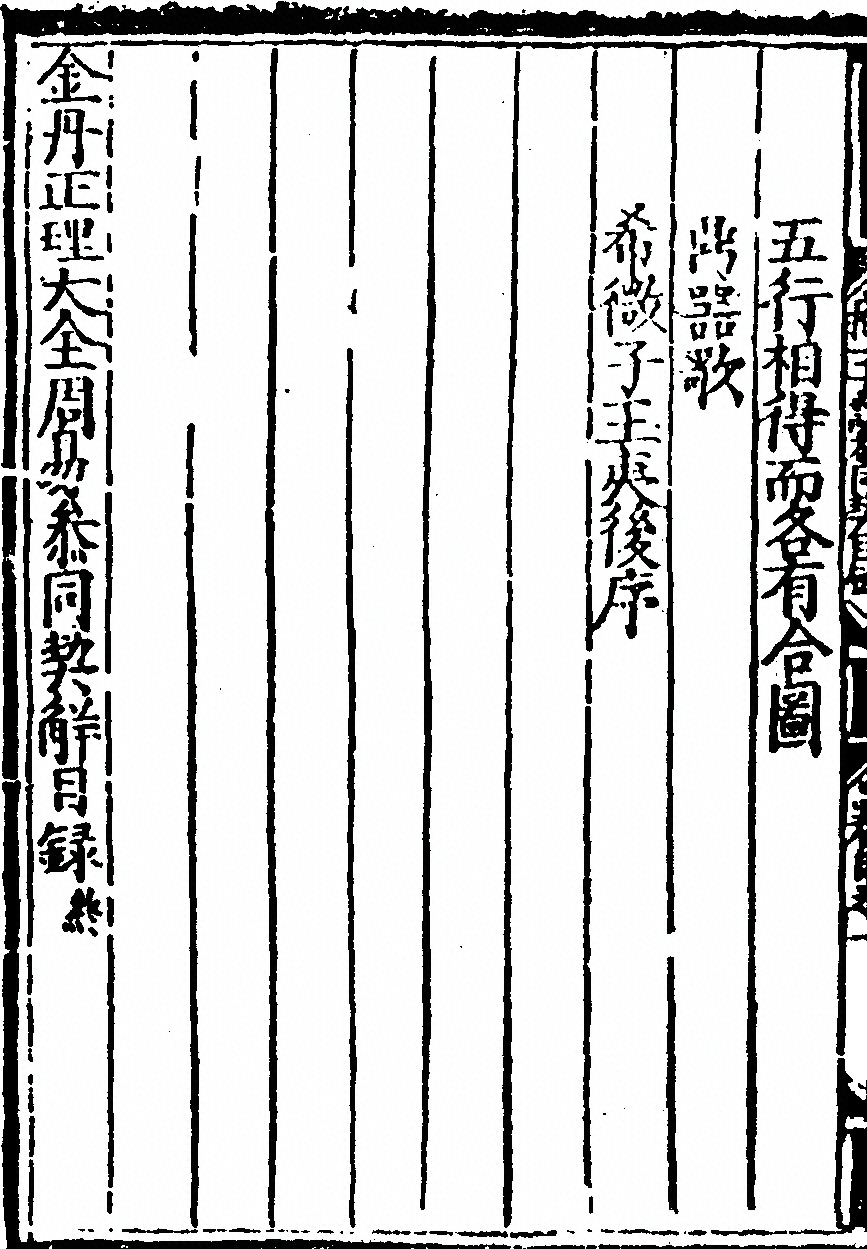 五行相得而各有合圖
鼎器歌
希微子王夷後序
金丹正理大全周易參同契解目録終